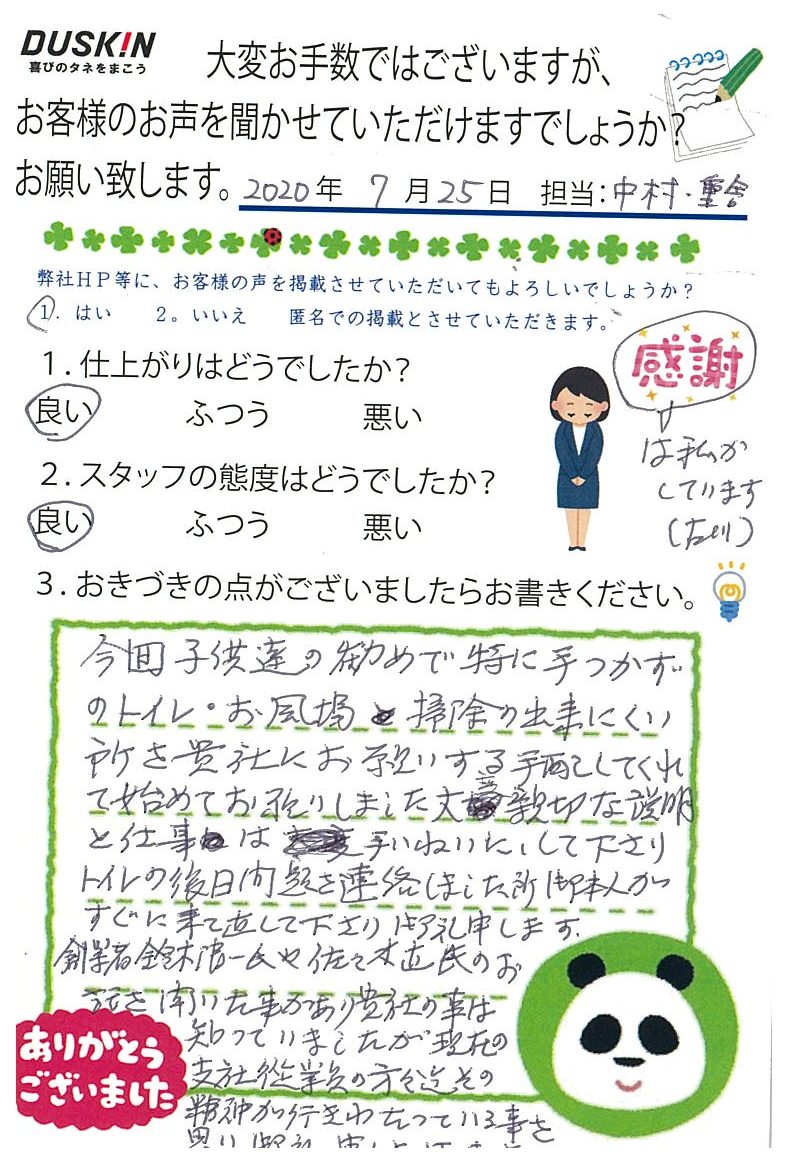 DUSKIN
喜びのタネをまこう
大変お手数ではございますが、
お客様のお声を聞かせていただけますでしょうか?
お願い致します。2020年 7月25日 担当:中村・重舎
弊社HP等に、お客様の声を掲載させていただいてもよろしいでしょうか?
1. はい 2。いいえ 匿名での掲載とさせていただきます。
1.仕上がりはどうでしたか?
良い ふつう 悪い
感謝
は私が
しています
2.スタッフの態度はどうでしたか?
良い ふつう 悪い
3.おきづきの点がございましたらお書きください。
今回子供達の勧めで特に手つかず
のトイレ・お風場と掃除の出来にくい
所を貴社にお願いする手配してくれ
て始めてお願りしました 親切な説明
と仕事は ていねいにして下さり
トイレの後日問題を連絡しました所御本人が
すぐに来て直して下さり御礼申します.
創業者鈴木清一氏や佐々木 氏のお
話を聞いた事があり貴社の事は
知っていましたが現在の
支社従業員の方々迄その
精神が行きわたっている事を
ありがとう
ございました